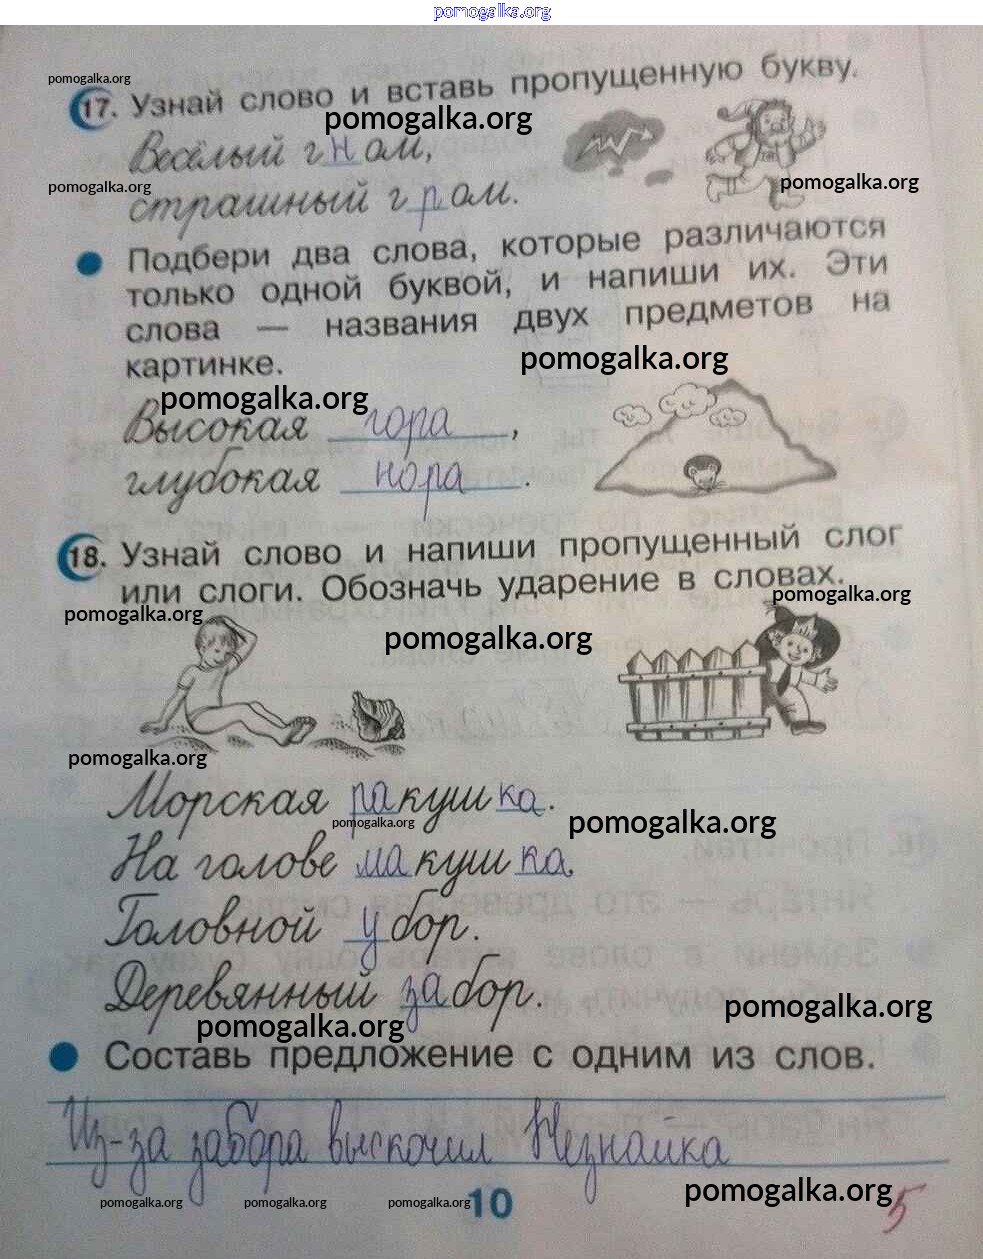 pomogalka.org
pomogalka.org
17. Узнай слово и вставь пропущенную букву.
pomogalka.org
Весёлый гном,
pomogalka.org
pomogalka.org
страшный гром.
Подбери два слова, которые различаются
только одной буквой, и напиши их. Эти
слова — названия двух предметов на
картинке.
pomogalka.org
pomogalka.org
Высокая гора,
глубокая нора.
18. Узнай слово и напиши пропущенный слог
или слоги. Обозначь ударение в словах.
pomogalka.org
pomogalka.org
pomogalka.org
pomogalka.org
Морская ракушка.
pomogalka.org
pomogalka.org
На голове макушка.
Головной убор.
Деревянный забор.
pomogalka.org
pomogalka.org
Составь предложение с одним из слов.
Из-за забора выскочил Незнайка
pomogalka.org
pomogalka.org pomogalka.org pomogalka.org
10
5